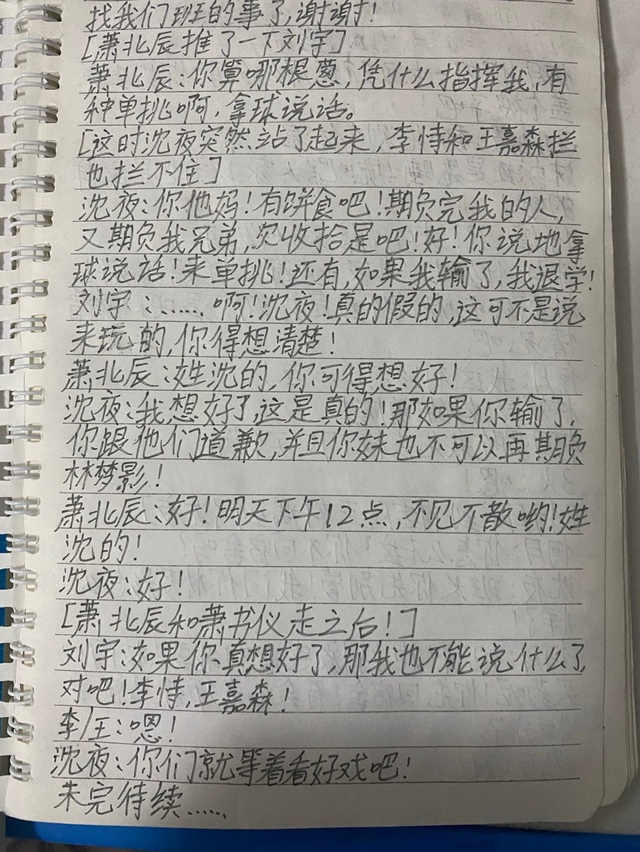 找我们班的事了,谢谢!
[萧北辰推了一下刘宇]
萧北辰:你算哪根葱,凭什么指挥我,有
种单挑啊,拿球说话。
[这时沈夜突然站了起来,李恃和王嘉森拦
也拦不住]
沈夜:你他妈!有饼食吧!期负完我的人,
又期负我兄弟,欠收拾是吧!好!你说地拿
球说话!来单挑!还有,如果我输了,我退学!
刘宇:……啊!沈夜!真的假的,这可不是说
来玩的,你得想清楚!
萧北辰:姓沈的,你可得想好!
沈夜:我想好了,这是真的!那如果你输了,
你跟他们道歉,并且你妹也不可以再期负
林梦影!
萧北辰:好!明天下午12点,不见不散哟!姓
沈的!
沈夜:好!
[萧北辰和萧书仪走之后!]
刘宇:如果你真想好了,那我也不能说什么了,
对吧!李恃,王嘉森!
李/王:嗯!
沈夜:你们就等着看好戏吧!
未完待续……